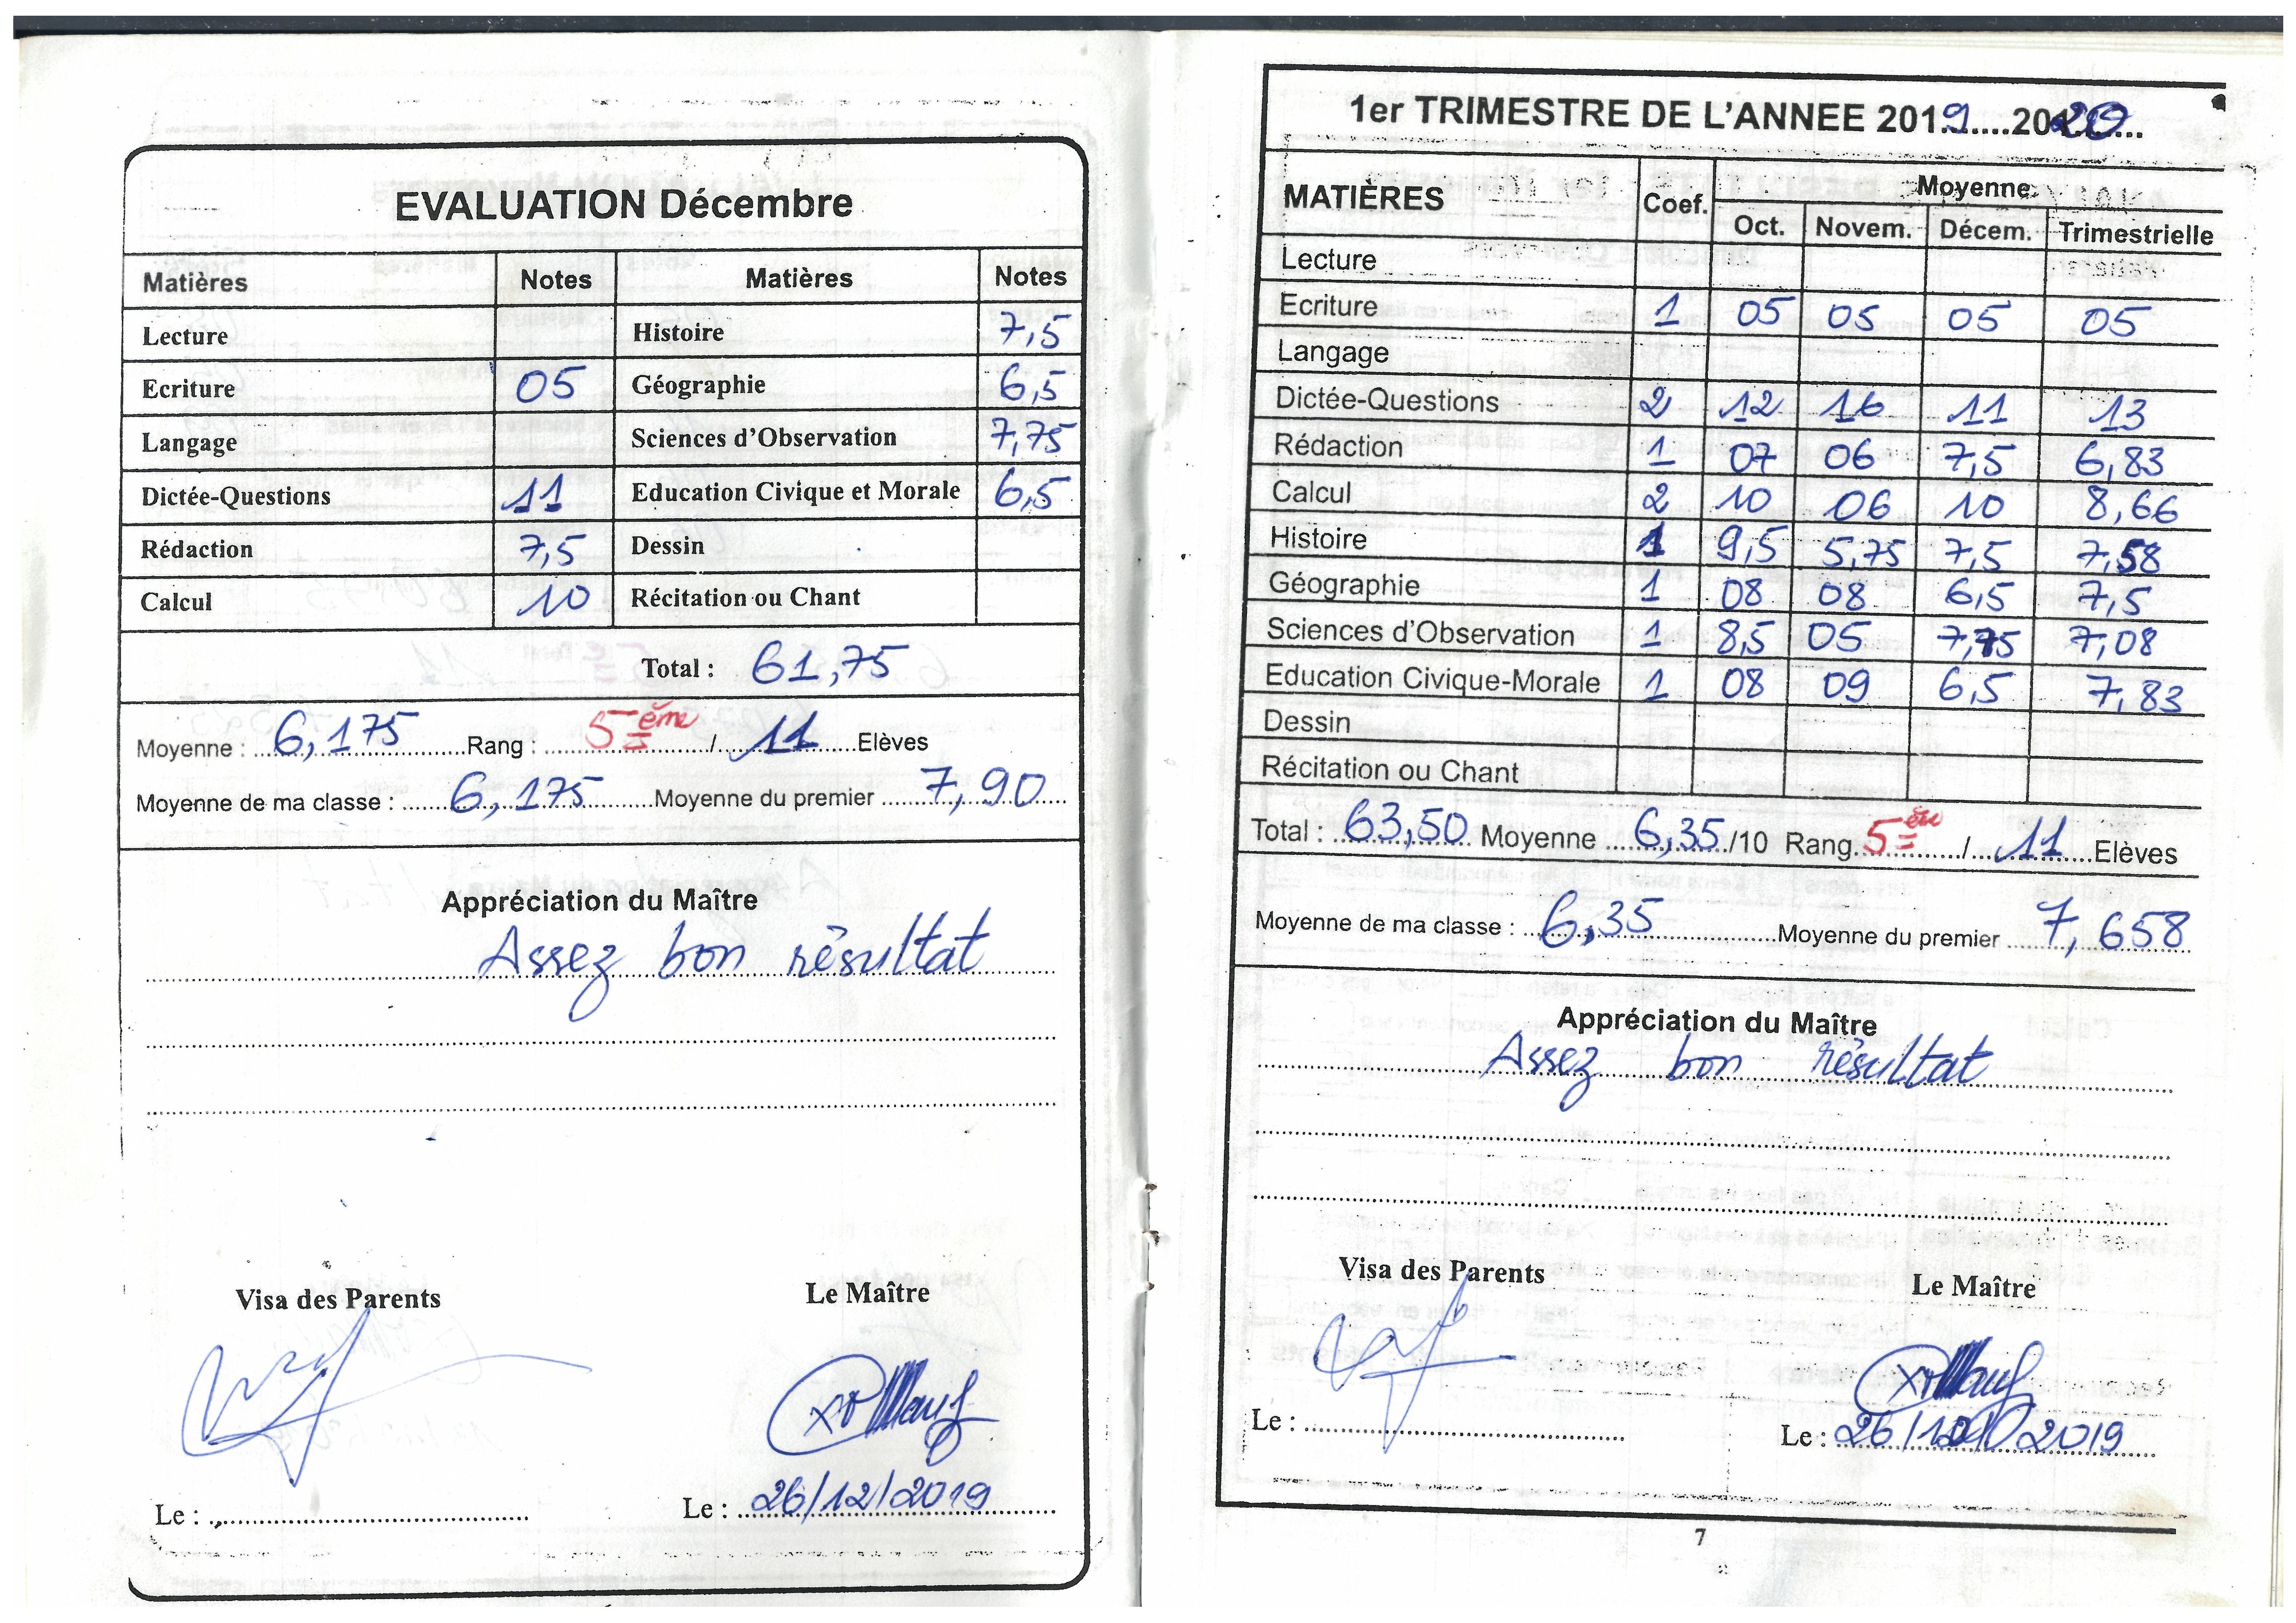 EVALUATION Décembre
Matières Notes Matières Notes
Lecture Histoire 7,5
Ecriture 05 Géographie 6,5
Langage Sciences d'Observation 7,75
Dictée-Questions 11 Education Civique et Morale 6,5
Rédaction 7,5 Dessin
Calcul 10 Récitation ou Chant
Total : 61,75
Moyenne : 6,175 Rang : 5ème / 11 Elèves
Moyenne de ma classe : 6,175 Moyenne du premier 7,90
Appréciation du Maître
Assez bon résultat
Visa des Parents Le Maître
Le : Le : 26/12/2019
1er TRIMESTRE DE L'ANNEE 2019 2020
MATIÈRES Coef. Moyenne
Oct. Novem. Décem. Trimestrielle
Lecture
Ecriture 1 05 05 05 05
Langage
Dictée-Questions 2 12 16 11 13
Rédaction 1 07 06 7,5 6,83
Calcul 2 10 06 10 8,66
Histoire 1 9,5 5,75 7,5 7,58
Géographie 1 08 08 6,5 7,5
Sciences d'Observation 1 8,5 05 7,75 7,08
Education Civique-Morale 1 08 09 6,5 7,83
Dessin
Récitation ou Chant
Total : 63,50 Moyenne 6,35 /10 Rang 5ème / 11 Elèves
Moyenne de ma classe : 6,35 Moyenne du premier 7,658
Appréciation du Maître
Assez bon résultat
Visa des Parents Le Maître
Le : Le : 26/ 2019
7